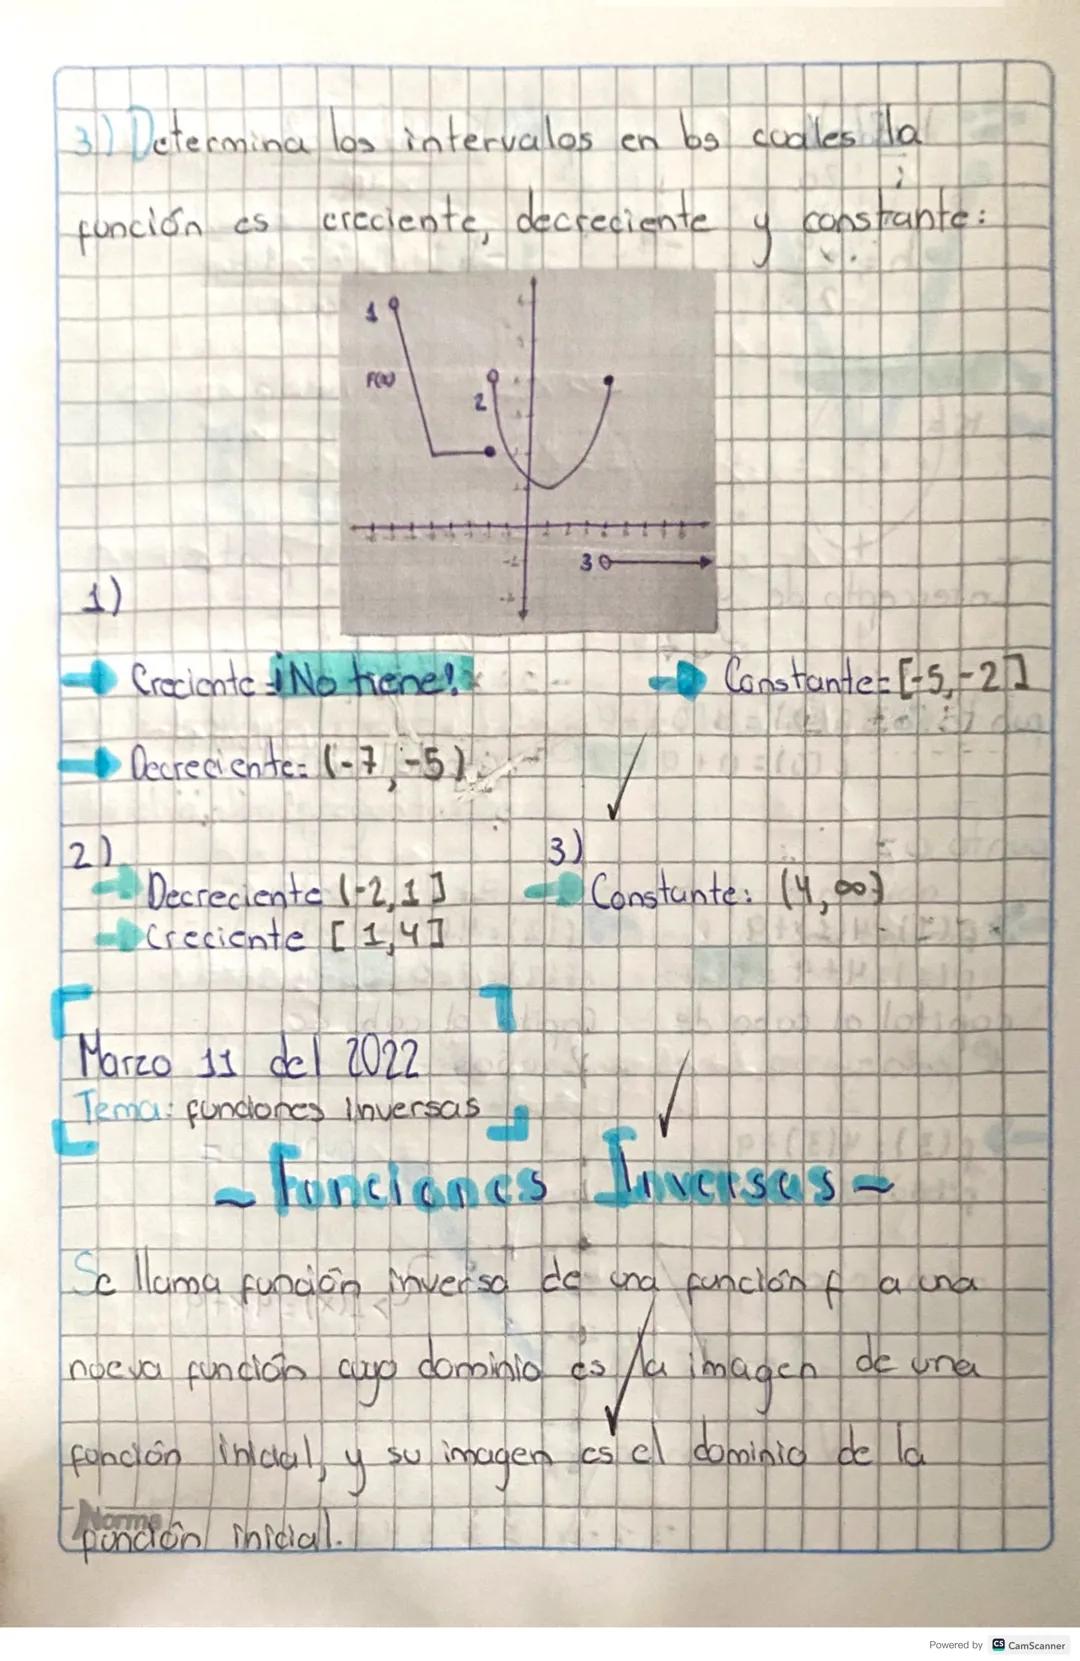 3) Determina los intervalos en los cuales la
función es creciente, decreciente y constante:
1
F(x)
2
3
1)
Creciente = ¡No tiene!
Constante = [-5,-2]
Decreciente = (-7,-5)
2)
Decreciente (-2,1]
Creciente [1,4]
3)
Constante: (4,∞)
Marzo 11 del 2022
Tema: funciones Inversas
~ Funciones Inversas ~
Se llama función inversa de una función f a una
nueva función cuyo dominio es la imagen de una
función inicial, y su imagen es el dominio de la
función inicial.
Norma
Powered by CS CamScanner